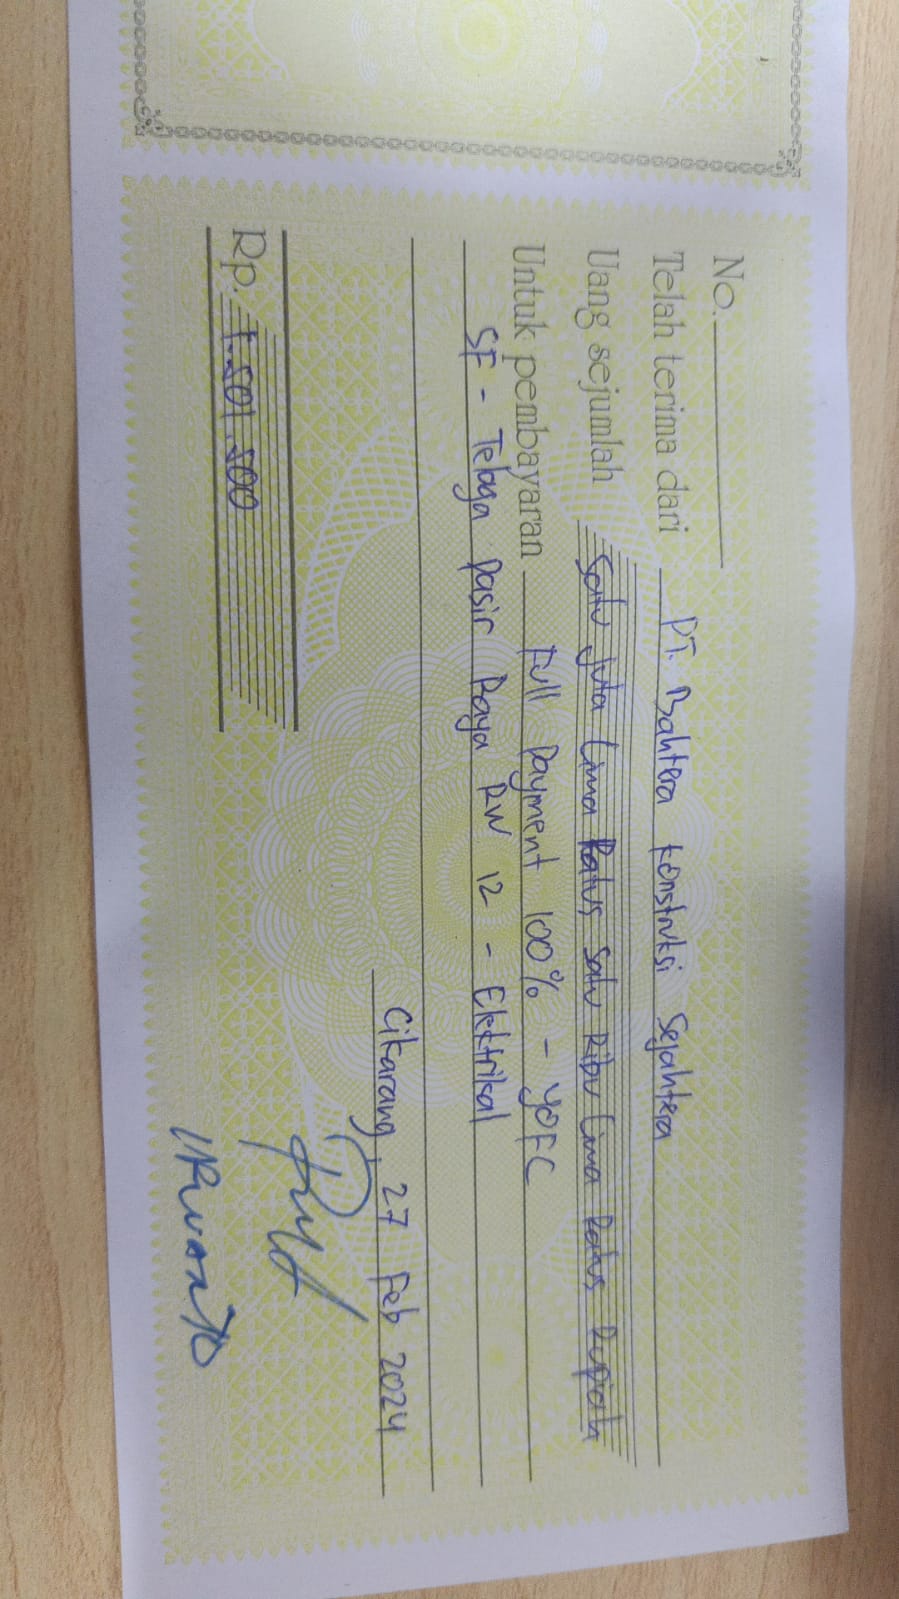 No.
Telah terima dari PT. Bahtera Konstruksi Sejahtera
Uang sejumlah Satu Juta Lima Ratus Satu Ribu Lima Ratus Rupiah
Untuk pembayaran Full Payment 100% - YOFC
SF - Telaga Pasir Raya RW 12 - Elektrikal
Cikarang, 27 Feb 2024
Rp. 1.501.500
IRWANTO